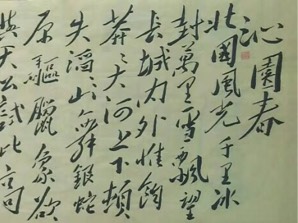 沁園春
北國風光千里冰
封萬里雪飄望
長城内外惟餘
莽々大河上下頓
失滔々山舞銀蛇
原驅臘象欲
與天公試比高